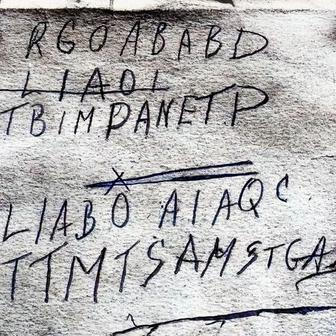 RGOABABD
LIAOI
TBIMPANETP
LIABOAIAQC
TTMTSAMSTGA